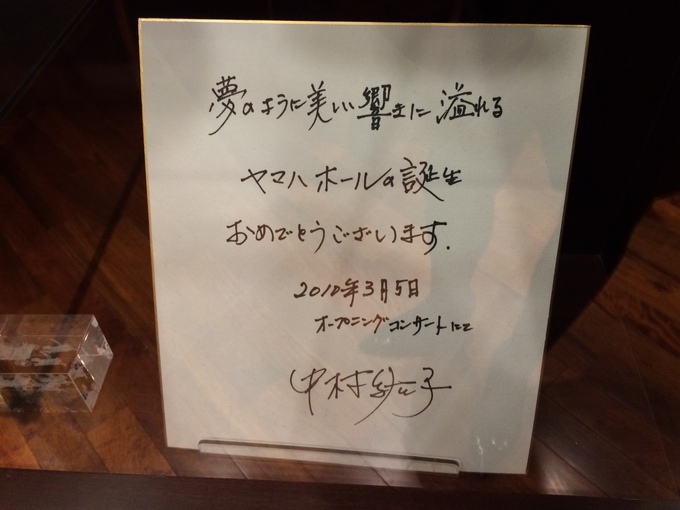 夢のように美しい響きに溢れる
ヤマハホールの誕生
おめでとうございます.
2010年3月5日
オープニングコンサートにて
中村紘子